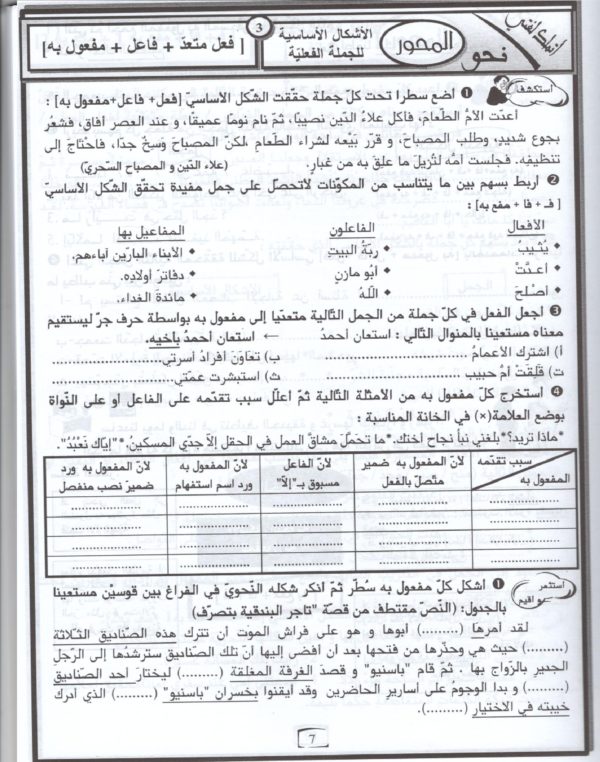 نحو
المحور
الأشكال الأساسية
للجملة الفعليّة
3
[ فعل متعدّ + فاعل + مفعول به ]
أستكشف
❶ أضع سطرا تحت كلّ جملة حقّقت الشكل الأساسيّ [فعل+ فاعل+مفعول به] :
أعدّت الأمّ الطّعامَ، فأكل علاءُ الدّين نصيبًا، ثمّ نام نومًا عميقًا، و عند العصر أفاق، فشعُر
بجوع شديدٍ، وطلب المصباحَ، و قرّر بَيْعَه لشراء الطّعام ،لكنّ المصباحَ وَسِخٌ جدّا، فاحْتَاج إلى
تنظيفِهِ. فجلست أمُّه لتُزيلَ ما علِق به من غبارٍ. (علاء الدّين و المصباح السّحريّ)
❷ أربط بسهم بين ما يتناسب من المكوّنات لأتحصّل على جمل مفيدة تحقّق الشكل الأساسيّ
[ فـ + فا + مفع به] :
الأفعال الفاعلون المفاعيل بها
• يُثيبُ • ربّةُ البيت • الأبناءَ البارّين آباءهم.
• أعدّتْ • أبُو مازنٍ • دفاترَ أولاده.
• أصْلحَ • اللّهُ • مائدةَ الغداء.
❸ أجعل الفعل في كلّ جملة من الجمل التّالية متعدّيا إلى مفعول به بواسطة حرف جرّ ليستقيم
معناه مستعينا بالمنوال التّالي : استعان أحمدُ ← استعان أحمدُ بأخيه.
أ) اشترك الأعمامُ .......... ب) تعاوَنَ أفرادُ أسرتي..........
ت) قلِقَتْ أمُّ حبيب .......... ث) استبشرت عمّتي..........
❹ أستخرج كلّ مفعول به من الأمثلة التّالية ثمّ أعلّل سبب تقدّمه على الفاعل أو على النّواة
بوضع العلامة(×) في الخانة المناسبة :
*ماذا تريد؟* بلغني نبأ نجاح أختك.*ما تحمّلَ مشاقَّ العمل في الحقل إلاّ جدّي المسكينُ.*"إيّاك نَعْبُدُ".
سبب تقدّمه
المفعول به
لأنّ المفعول به ضمير
متّصل بالفعل
لأنّ الفاعل
مسبوق بـ"إلاّ"
لأنّ المفعول به
ورد اسم استفهام
لأنّ المفعول به ورد
ضميرَ نصب منفصل
أستثمر
❶ أشكل كلّ مفعول به سُطّر ثمّ أذكر شكله النّحويّ في الفراغ بين قوسيْن مستعينا
بالجدول: (النّصّ مقتطف من قصّة "تاجر البندقية بتصرّف)
لقد أمرها (.........) أبوها و هو على فراش الموت أن تترك هذه الصّناديق الثّلاثة
(.........) حيث هي وحذّرها من فتحها بعد أن أفضى إليها أنّ تلك الصّناديق سترشدُها إلى الرّجلِ
الجدير بالزّواج بها . ثمّ قام "باسنيو" و قصدَ الغرفة المغلقة (.........) ليختارَ أحد الصّناديق
(.........) و بدا الوجومُ على أساريرِ الحاضرين وقد أيقنوا بخسران "باسنيو" (.........) الذي أدرك
خيبته في الاختيار (.........).
7